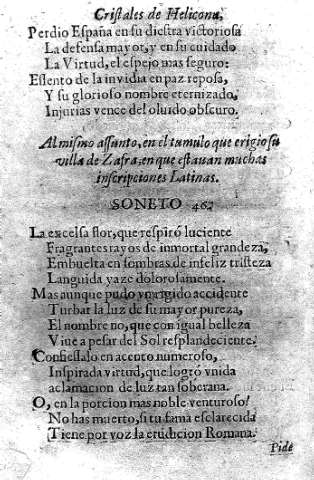 Cristales de Helicona,
Perdio España en su diestra victoriosa
La defensa mayor, y en su cuidado
La Virtud, el espejo mas seguro:
Essento de la invidia en paz reposa,
Y su glorioso nombre eternizado,
Injurias vence del oluido obscuro.
Al mismo assunto, en el tumulo que erigio su
villa de Zafra, en que estauan muchas
inscripciones Latinas.
SONETO 462
La excelsa flor, que respirò luciente
Fragrantes rayos de inmortal grandeza,
Embuelta en sombras de infeliz tristeza
Languida yaze dolorosamente.
Mas aunque pudo vn rigido accidente
Turbar la luz de su mayor pureza,
El nombre no, que con igual belleza
Viue a pesar del Sol resplandeciente.
Confiessalo en acento numeroso,
Inspirada virtud, que logrò vnida
aclamacion de luz tan soberana.
O, en la porcion mas noble venturoso!
No has muerto, si tu fama esclarecida
Tiene por voz la erudicion Romana.
Pide